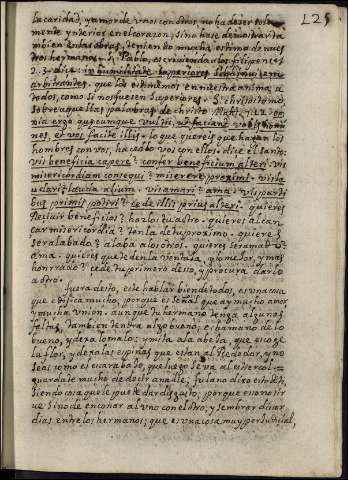 L25
la caridad, y amor de unos con otros, no ha de ser solo
mente ynterior en el corazon, sino hase de mostrar ta
mbien en las obras, teniendo mucha estima de nuestros
hermanos. S. Pablo, escriviendo a los filipenses
2. 3. dize: in humilitate superiores sibi invicem
arbitrantes. que los estimemos en nuestra anima, a
todos, como si nos fuesen superiores. S. Chrisostomo
sobre aquellas palabras de christo Math. 7. 12. om
nia ergo quecunque vultis, ut faciant vobis homi
nes, et vos facite illis. lo que quereis que hagan los
hombres con vos, hacedlo vos con ellos. dice el santo:
vis beneficia capere? confer beneficium alteri. vis
misericordiam consequi? miserere proximi. vis
laudari? lauda alium. vis amari? ama. vis parti
bus primis potiri? cede illi prius alteri. quieres
Recivir beneficios? hazlos tu a otro. quieres alcan
çar misericordia? tenla de tu proximo. quieres
ser alabado? alaba a los otros. quieres ser amado?
ama. quieres que te den la ventaja, y lo mejor, y mas
honrrado? cede tu primero de eso, y procura darlo
a otro.
fuera desto, este hablar bien de todos, es una cosa
que edifica mucho, porque es señal que ay mucho amor
y mucha union. aunque tu hermano tenga algunas
faltas, tambien tendra algo bueno, echa mano de lo
bueno, y dexa lo malo: ymita a la abeja, que escoge
la flor, y dexa las espinas que estan al Rededor, y no
seas como el escarabajo, que luego se va al estiercol.
guardate mucho de decir a nadie, fulano dixo esto de ti,
siendo cosa que le puede dar disgusto, porque eso no sir
ve sino de enconar al uno con el otro, y sembrar discor
dias entre los hermanos; que es una cosa muy perjudicial,